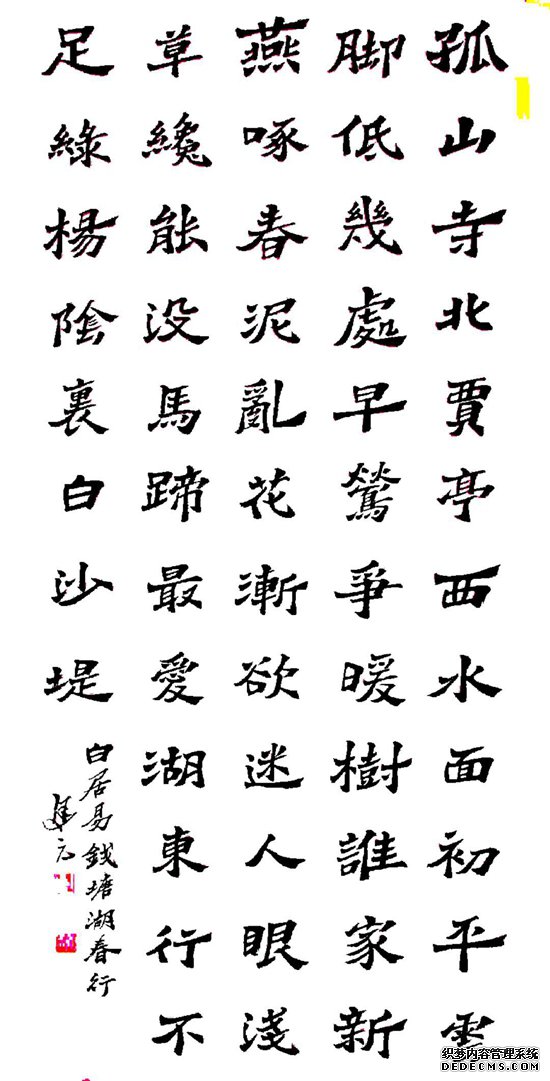 孤山寺北賈亭西水面初平雲
脚低幾處早鶯爭暖樹誰家新
燕啄春泥亂花漸欲迷人眼淺
草纔能没馬蹄最愛湖東行不
足綠楊陰裏白沙堤
白居易錢塘湖春行
织梦内容管理系统
DEDECMS.COM